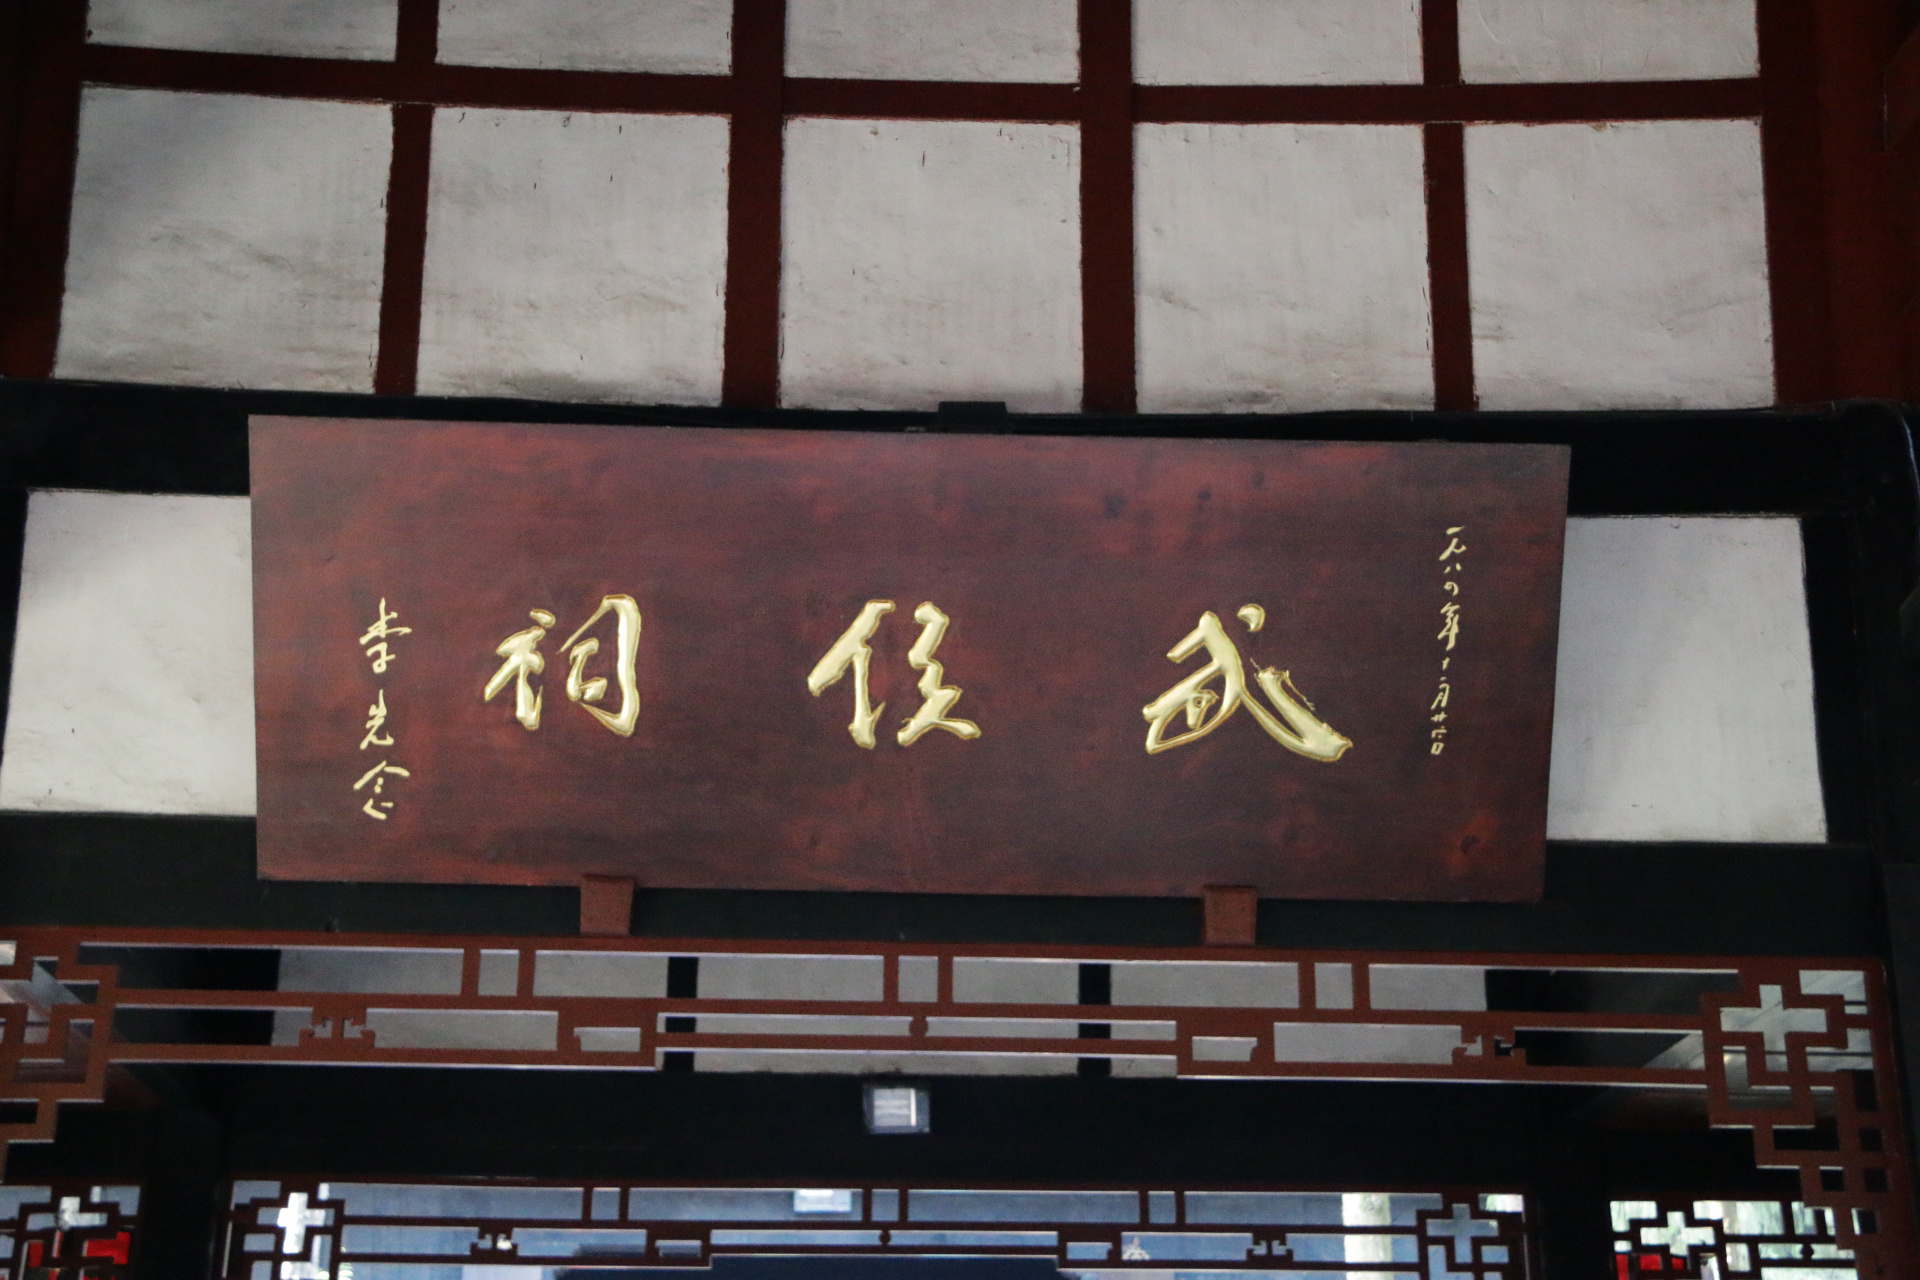 一九八四年十一月廿六日
武侯祠
李先念